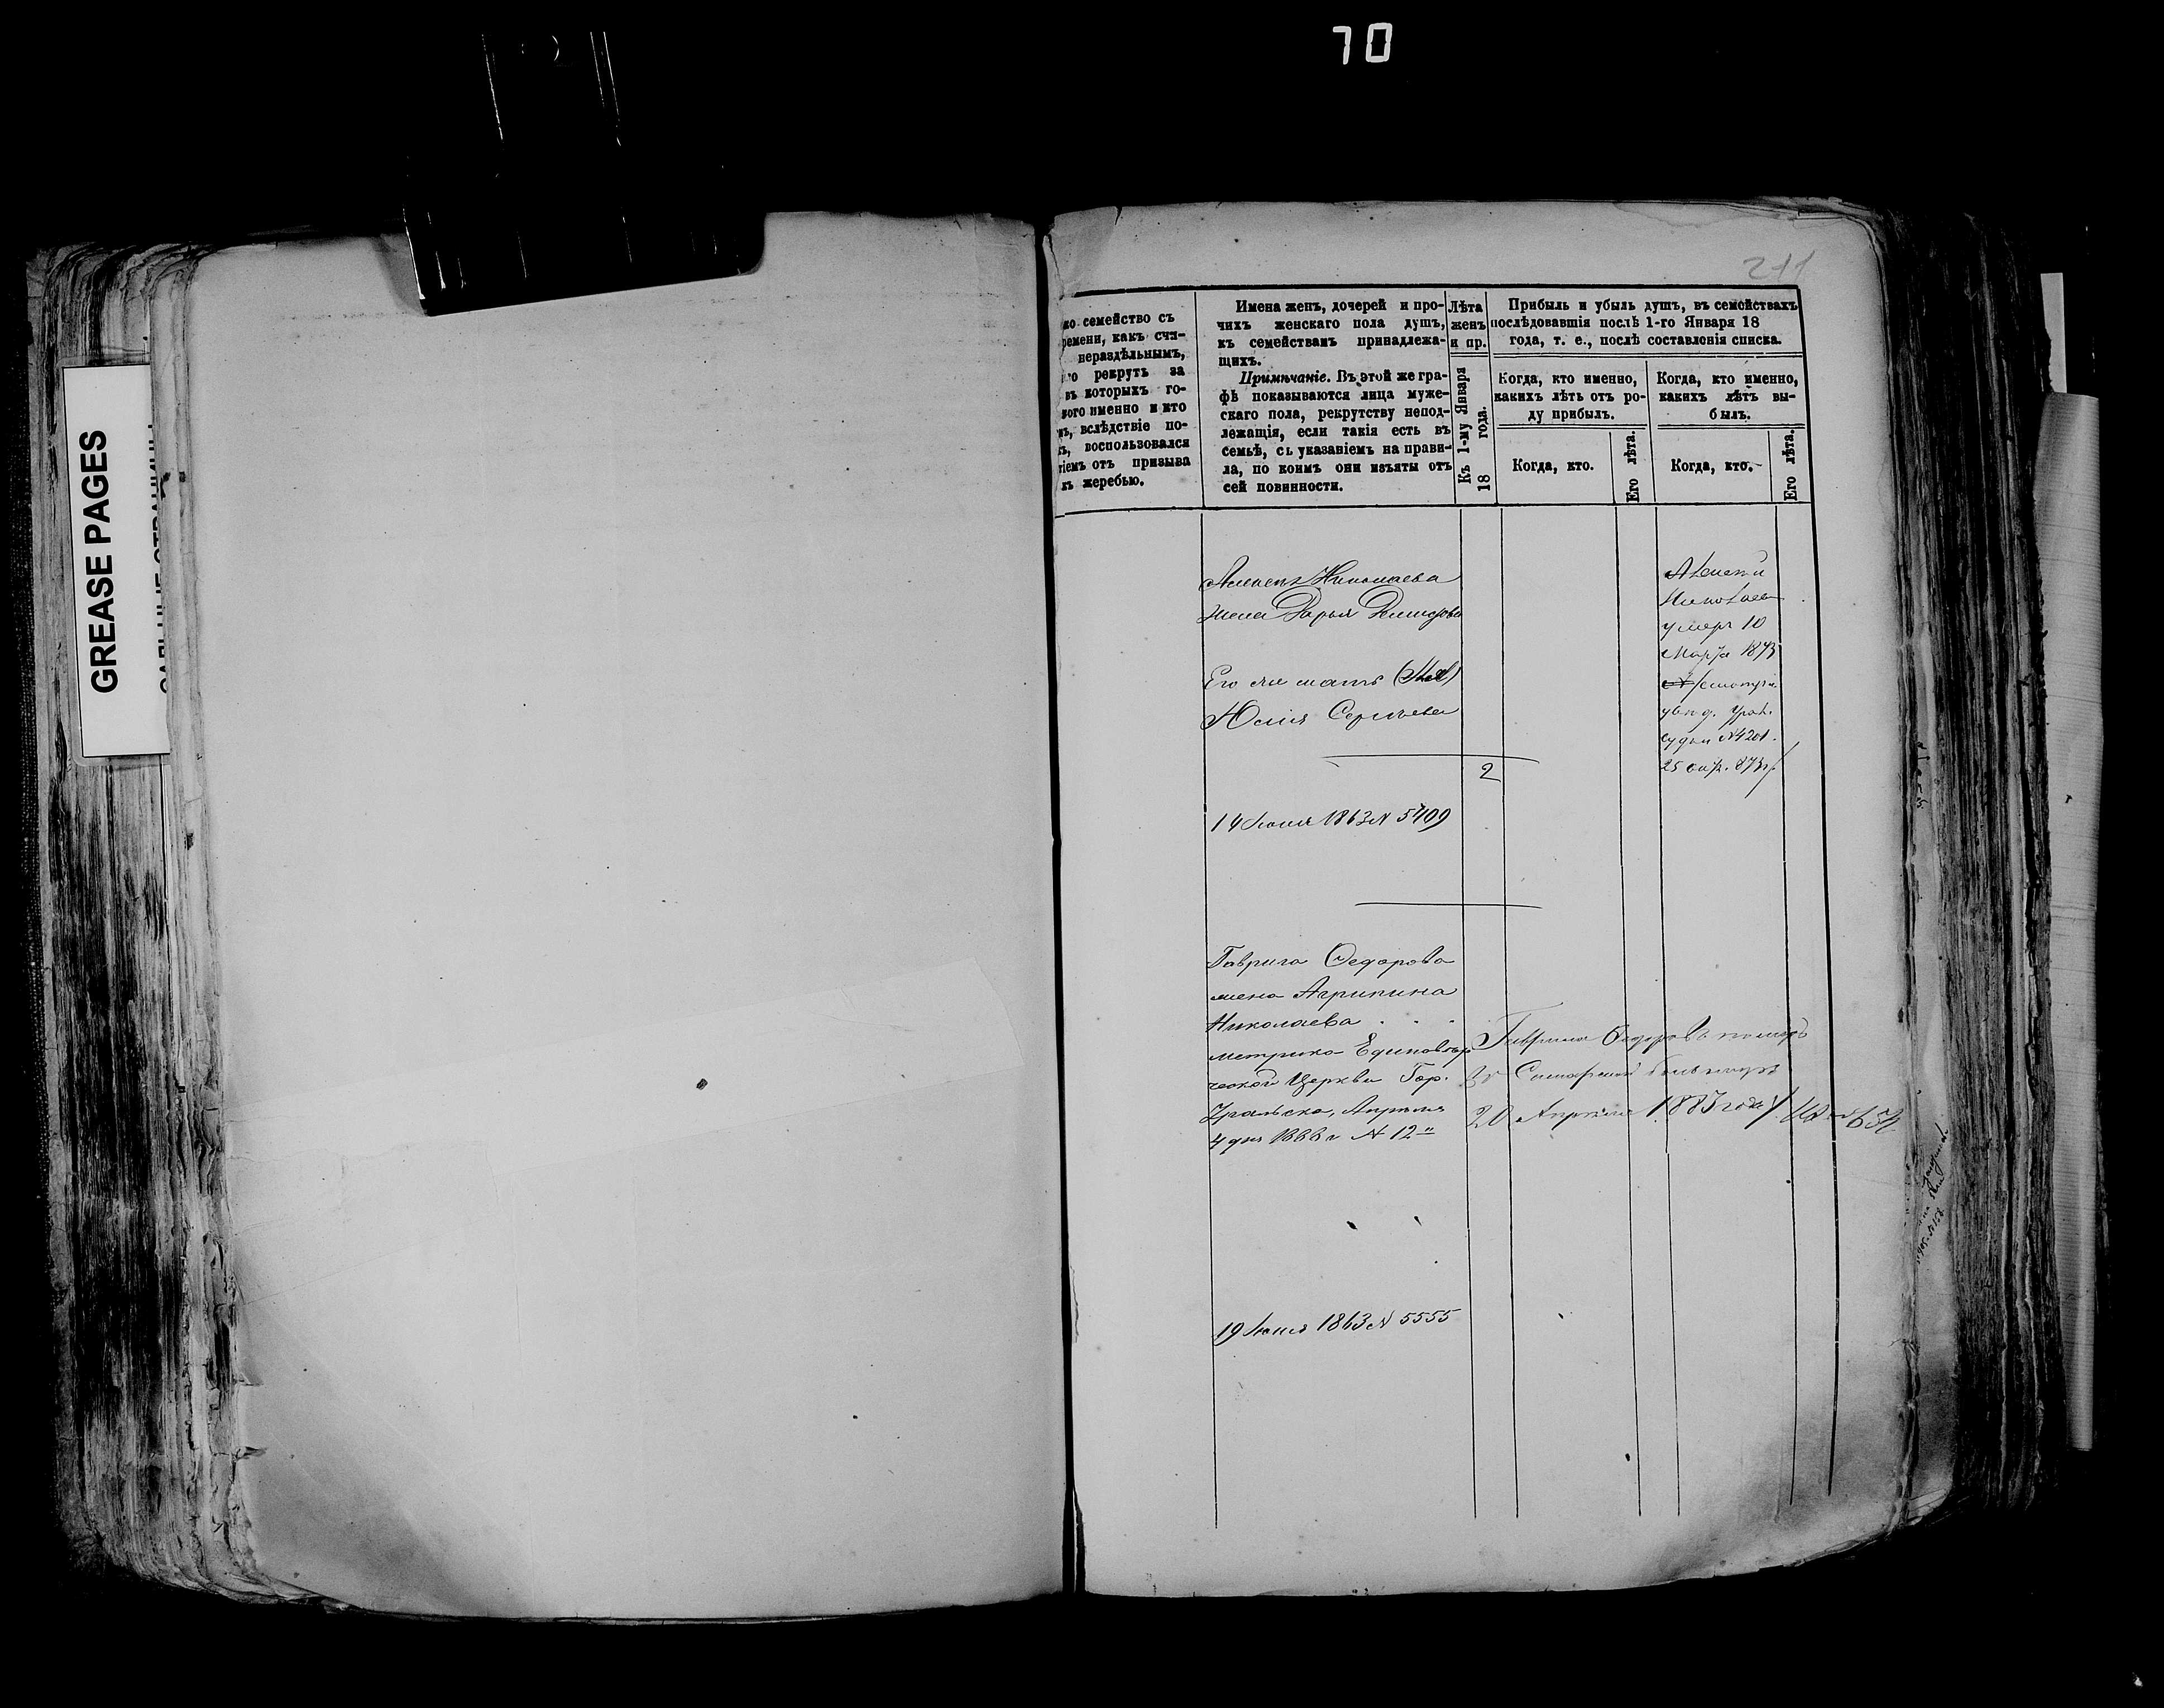 70
GREASE PAGES
211
но семейство съ
ремени, какъ счи-
нераздѣльнымъ,
го рекрутъ за
въ которыхъ го-
кого именно и кто
мъ, вслѣдствіе по-
ъ, воспользовался
тіемъ отъ призыва
къ жеребью.
Имена женъ, дочерей и про-
чихъ женскаго пола душъ,
къ семействамъ принадлежа-
щихъ.
Примѣчаніе. Въ этой же гра-
фѣ показываются лица муже-
скаго пола, рекрутству непод-
лежащія, если такія есть въ
семьѣ, съ указаніемъ на прави-
ла, по коимъ они изъяты отъ
сей повинности.
Лѣта
женъ
и пр.
Къ 1-му Января
18 года.
Прибыль и убыль душъ, въ семействахъ
послѣдовавшія послѣ 1-го Января 18
года, т. е., послѣ составленія списка.
Когда, кто именно,
какихъ лѣтъ отъ ро-
ду прибылъ.
Когда, кто именно,
какихъ лѣтъ вы-
былъ.
Когда, кто.
Его лѣта.
Когда, кто.
Его лѣта.
Алексѣя Николаева
жена Дарья
Его же мать
Юлія Сергѣева
2
14 Іюня 1863 N 5409
Алексѣй
Николаевъ
умеръ 10
Марта 1873
N 4201.
25 окт. 873 г.
Гаврила Ѳедорова
жена Агрипина
Николаева . . .
метрика Единовѣр
ческой Церкви Гор.
Уральска, Апрѣля
4 дня 1866 г N 12
Гаврила Ѳедоровъ померъ
въ Самарской больницѣ
20 Апрѣля 1883 года
19 Іюня 1863 N 5555